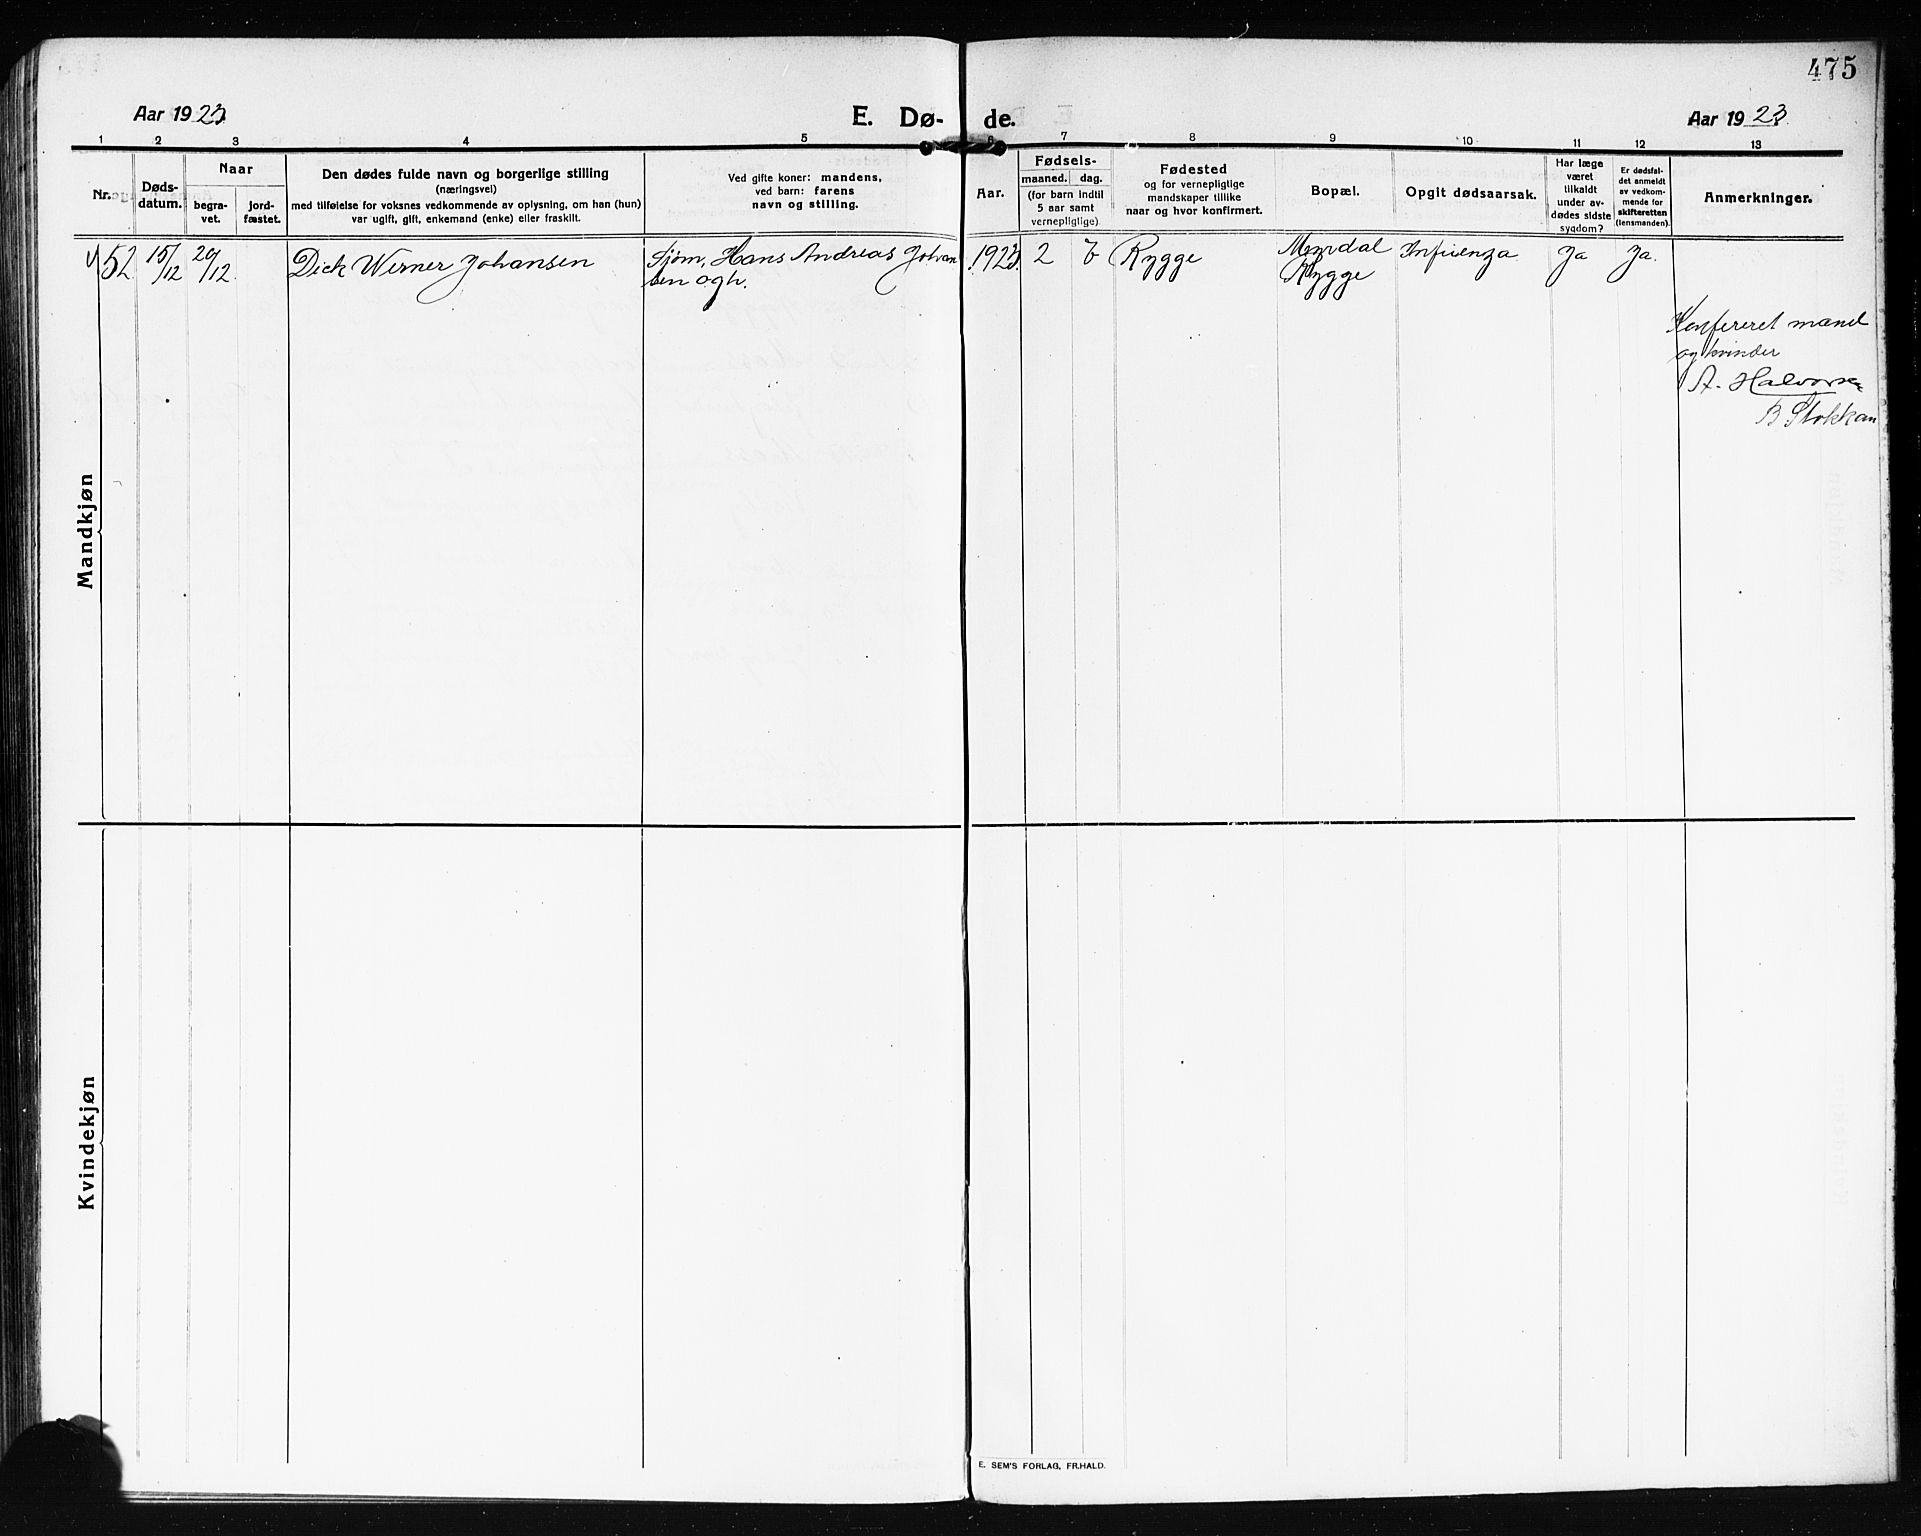 475
Aar 1923
E. Dø-
de.
Aar 1923
1 2 3 4 5 6 7 8 9 10 11 12 13
Nr.
Døds-
datum.
Naar
begra-
vet.
jord-
fæstet.
Den dødes fulde navn og borgerlige stilling
(næringsvei)
med tilføielse for voksnes vedkommende av oplysning, om han (hun)
var ugift, gift, enkemand (enke) eller fraskilt.
Ved gifte koner: mandens,
ved barn: farens
navn og stilling.
Aar.
Fødsels-
maaned. dag.
(for barn indtil
5 aar samt
vernepligtige)
Fødested
og for vernepligtige
mandskaper tillike
naar og hvor konfirmert.
Bopæl.
Opgit dødsaarsak.
Har læge
været
tilkaldt
under av-
dødes sidste
sygdom?
Er dødsfal-
det anmeldt
av vedkom-
mende for
skifteretten
(lensmanden).
Anmerkninger.
52 15/12 20/12 Dick Werner Johansen
Sjøm, Hans Andreas Johan
sen ogh.
1923. 2 Rygge
Myrdal
Rygge
Infuenza Ja Ja.
Konfereret mænd
og kvinder
A. Halvorsen
B Stokkan
Mandkjøn
Kvindekjøn
E. SEM'S FORLAG, FR.HALD.